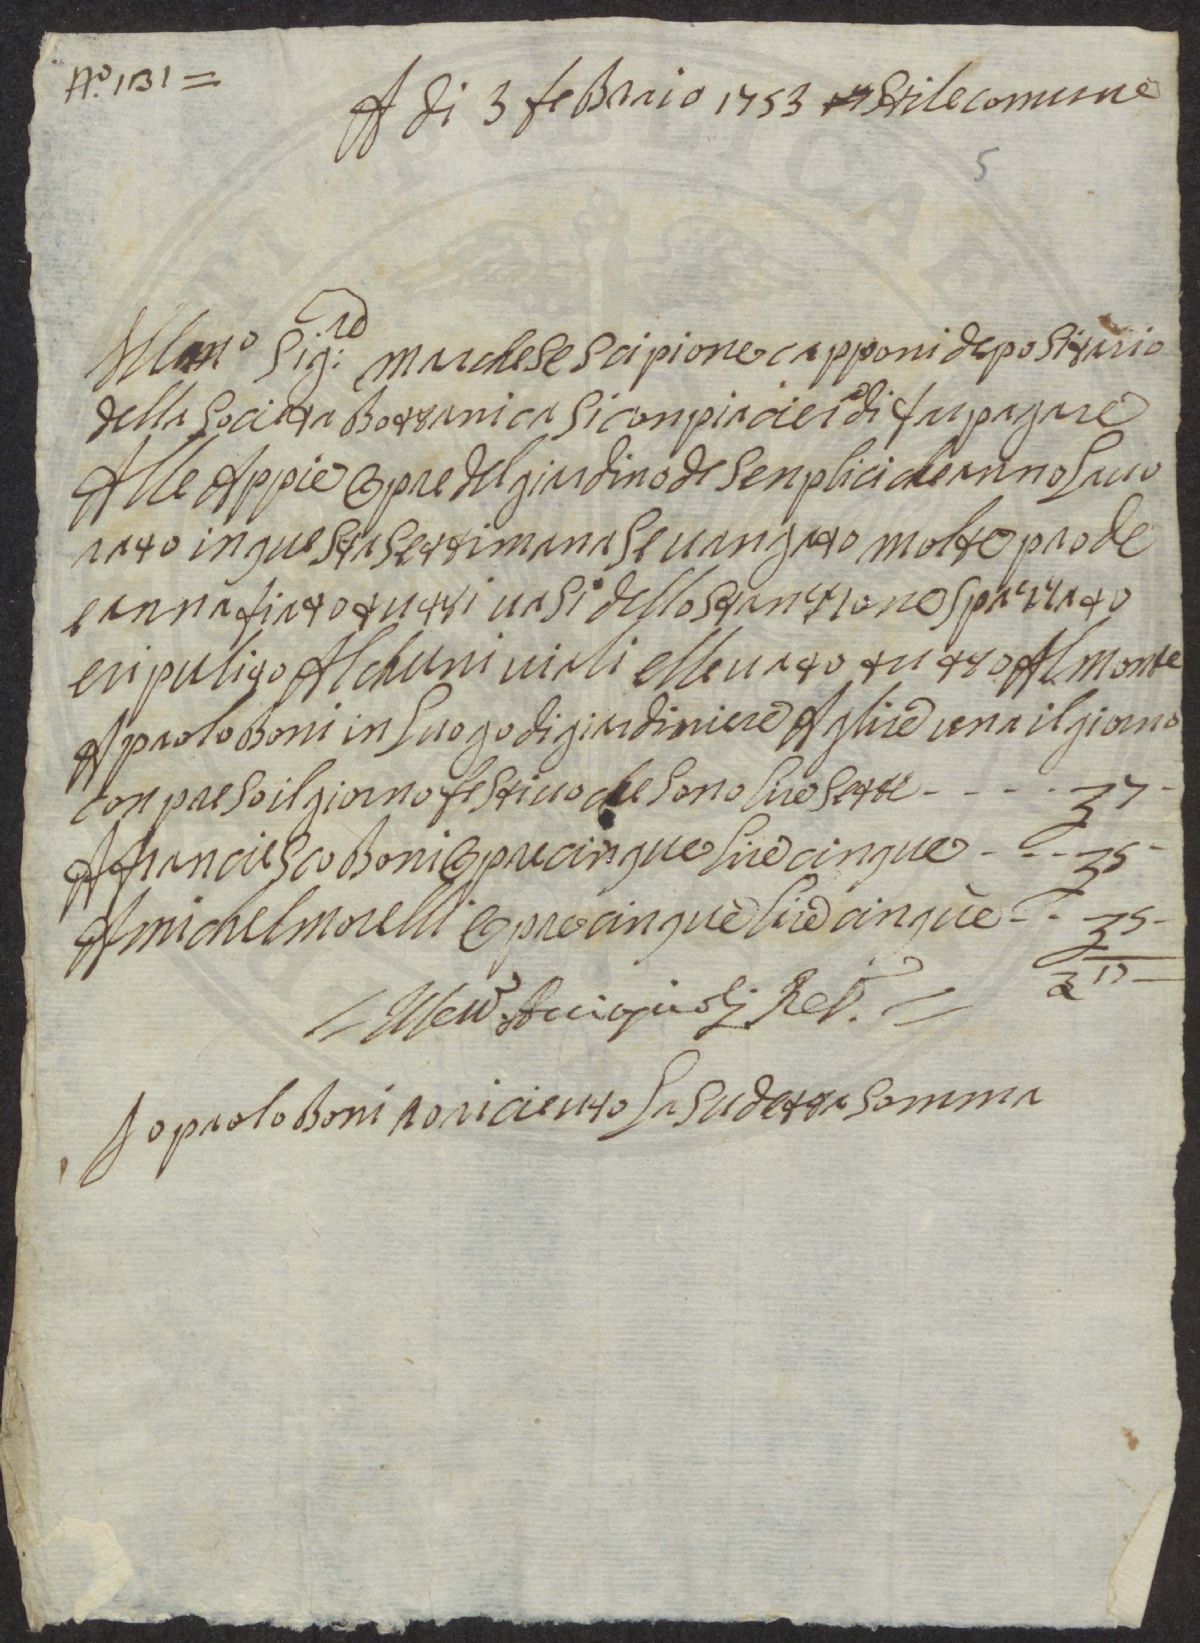 N.º 131 =
A di 3 feBraio 1753 Stile comune
5
Illmo Sig:re marchese Scipione capponi depositario
della Societta Bottanica Si conpiacierà di far pagare
Alle Appie Opre del giardino de Senplici che anno Lauo
rato in questa Settimana Se uangato molte prode
e annafiato tutti uasi dello Stanzzone Spazzato
e ripulito Alchuni uiali e lleuato tutto Al monte
A paolo Boni in Luogo di giardiniere A lire una il giorno
conpreso il giorno festiuo che Sono lire Sette - - - - - 7 -
A franciesco Boni Opre cinque lire cinque - - - 5 -
A michel morelli Opre cinque lire cinque - - - 5 -
17 -
Acciajuoli
Io paolo Boni o ricieuto La Sudetta Somma